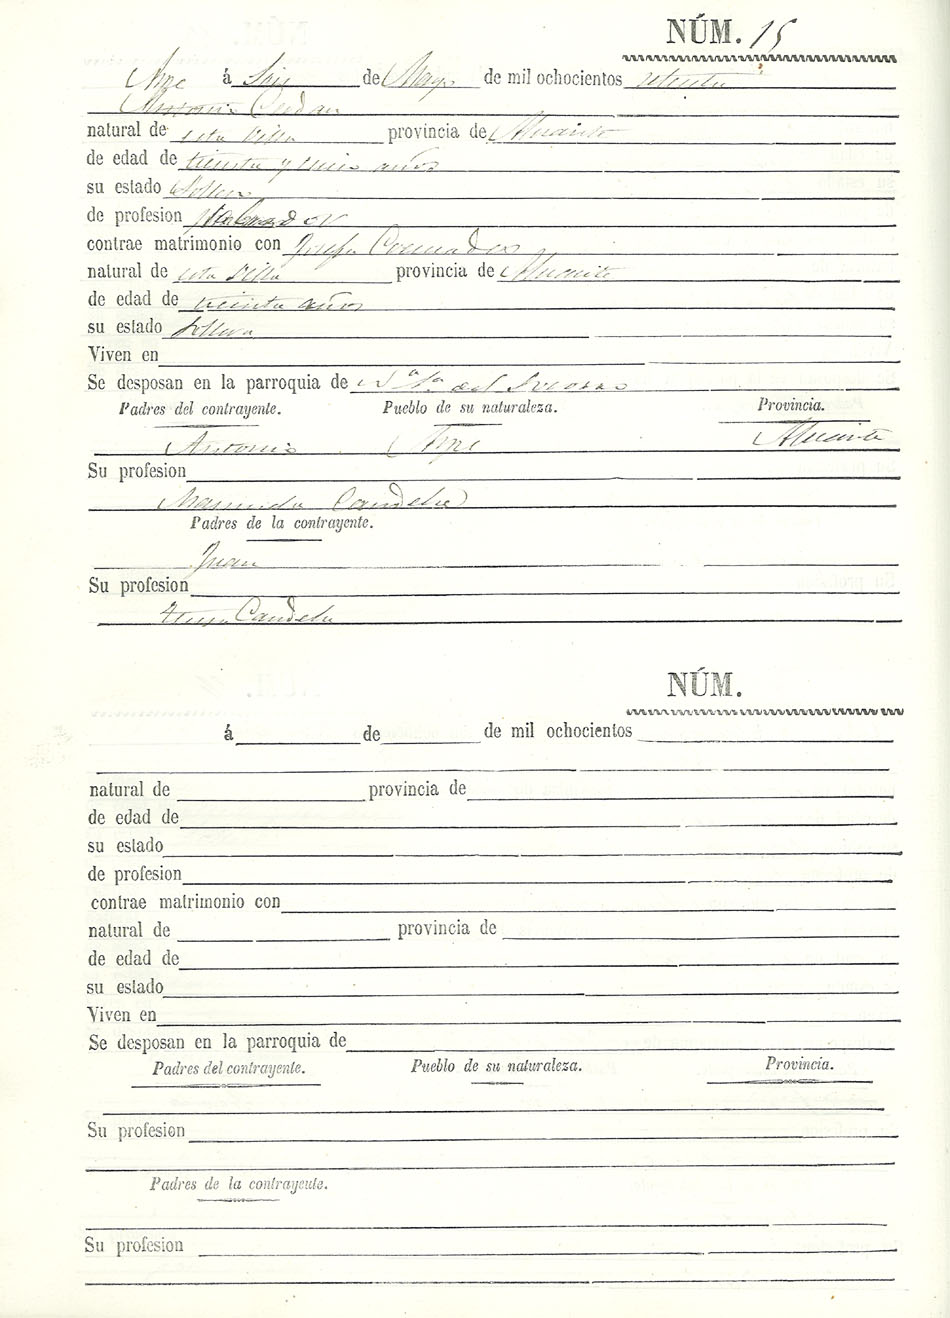 NÚM. 15
Aspe á Seis de Mayo de mil ochocientos setenta
Antonio Cerdan
natural de esta Villa provincia de Alicante
de edad de treinta y seis años
su estado Soltero
de profesion Jornalero
contrae matrimonio con Josefa
natural de esta Villa provincia de Alicante
de edad de treinta años
su estado Soltera
Viven en
Se desposan en la parroquia de N.ª S.ª del Socorro
Padres del contrayente. Pueblo de su naturaleza. Provincia.
Antonio Aspe Alicante
Su profesion
Manuela Candela
Padres de la contrayente.
Juan
Su profesion
Candela
NÚM.
á de de mil ochocientos
natural de provincia de
de edad de
su estado
de profesion
contrae matrimonio con
natural de provincia de
de edad de
su estado
Viven en
Se desposan en la parroquia de
Padres del contrayente. Pueblo de su naturaleza. Provincia.
Su profesion
Padres de la contrayente.
Su profesion